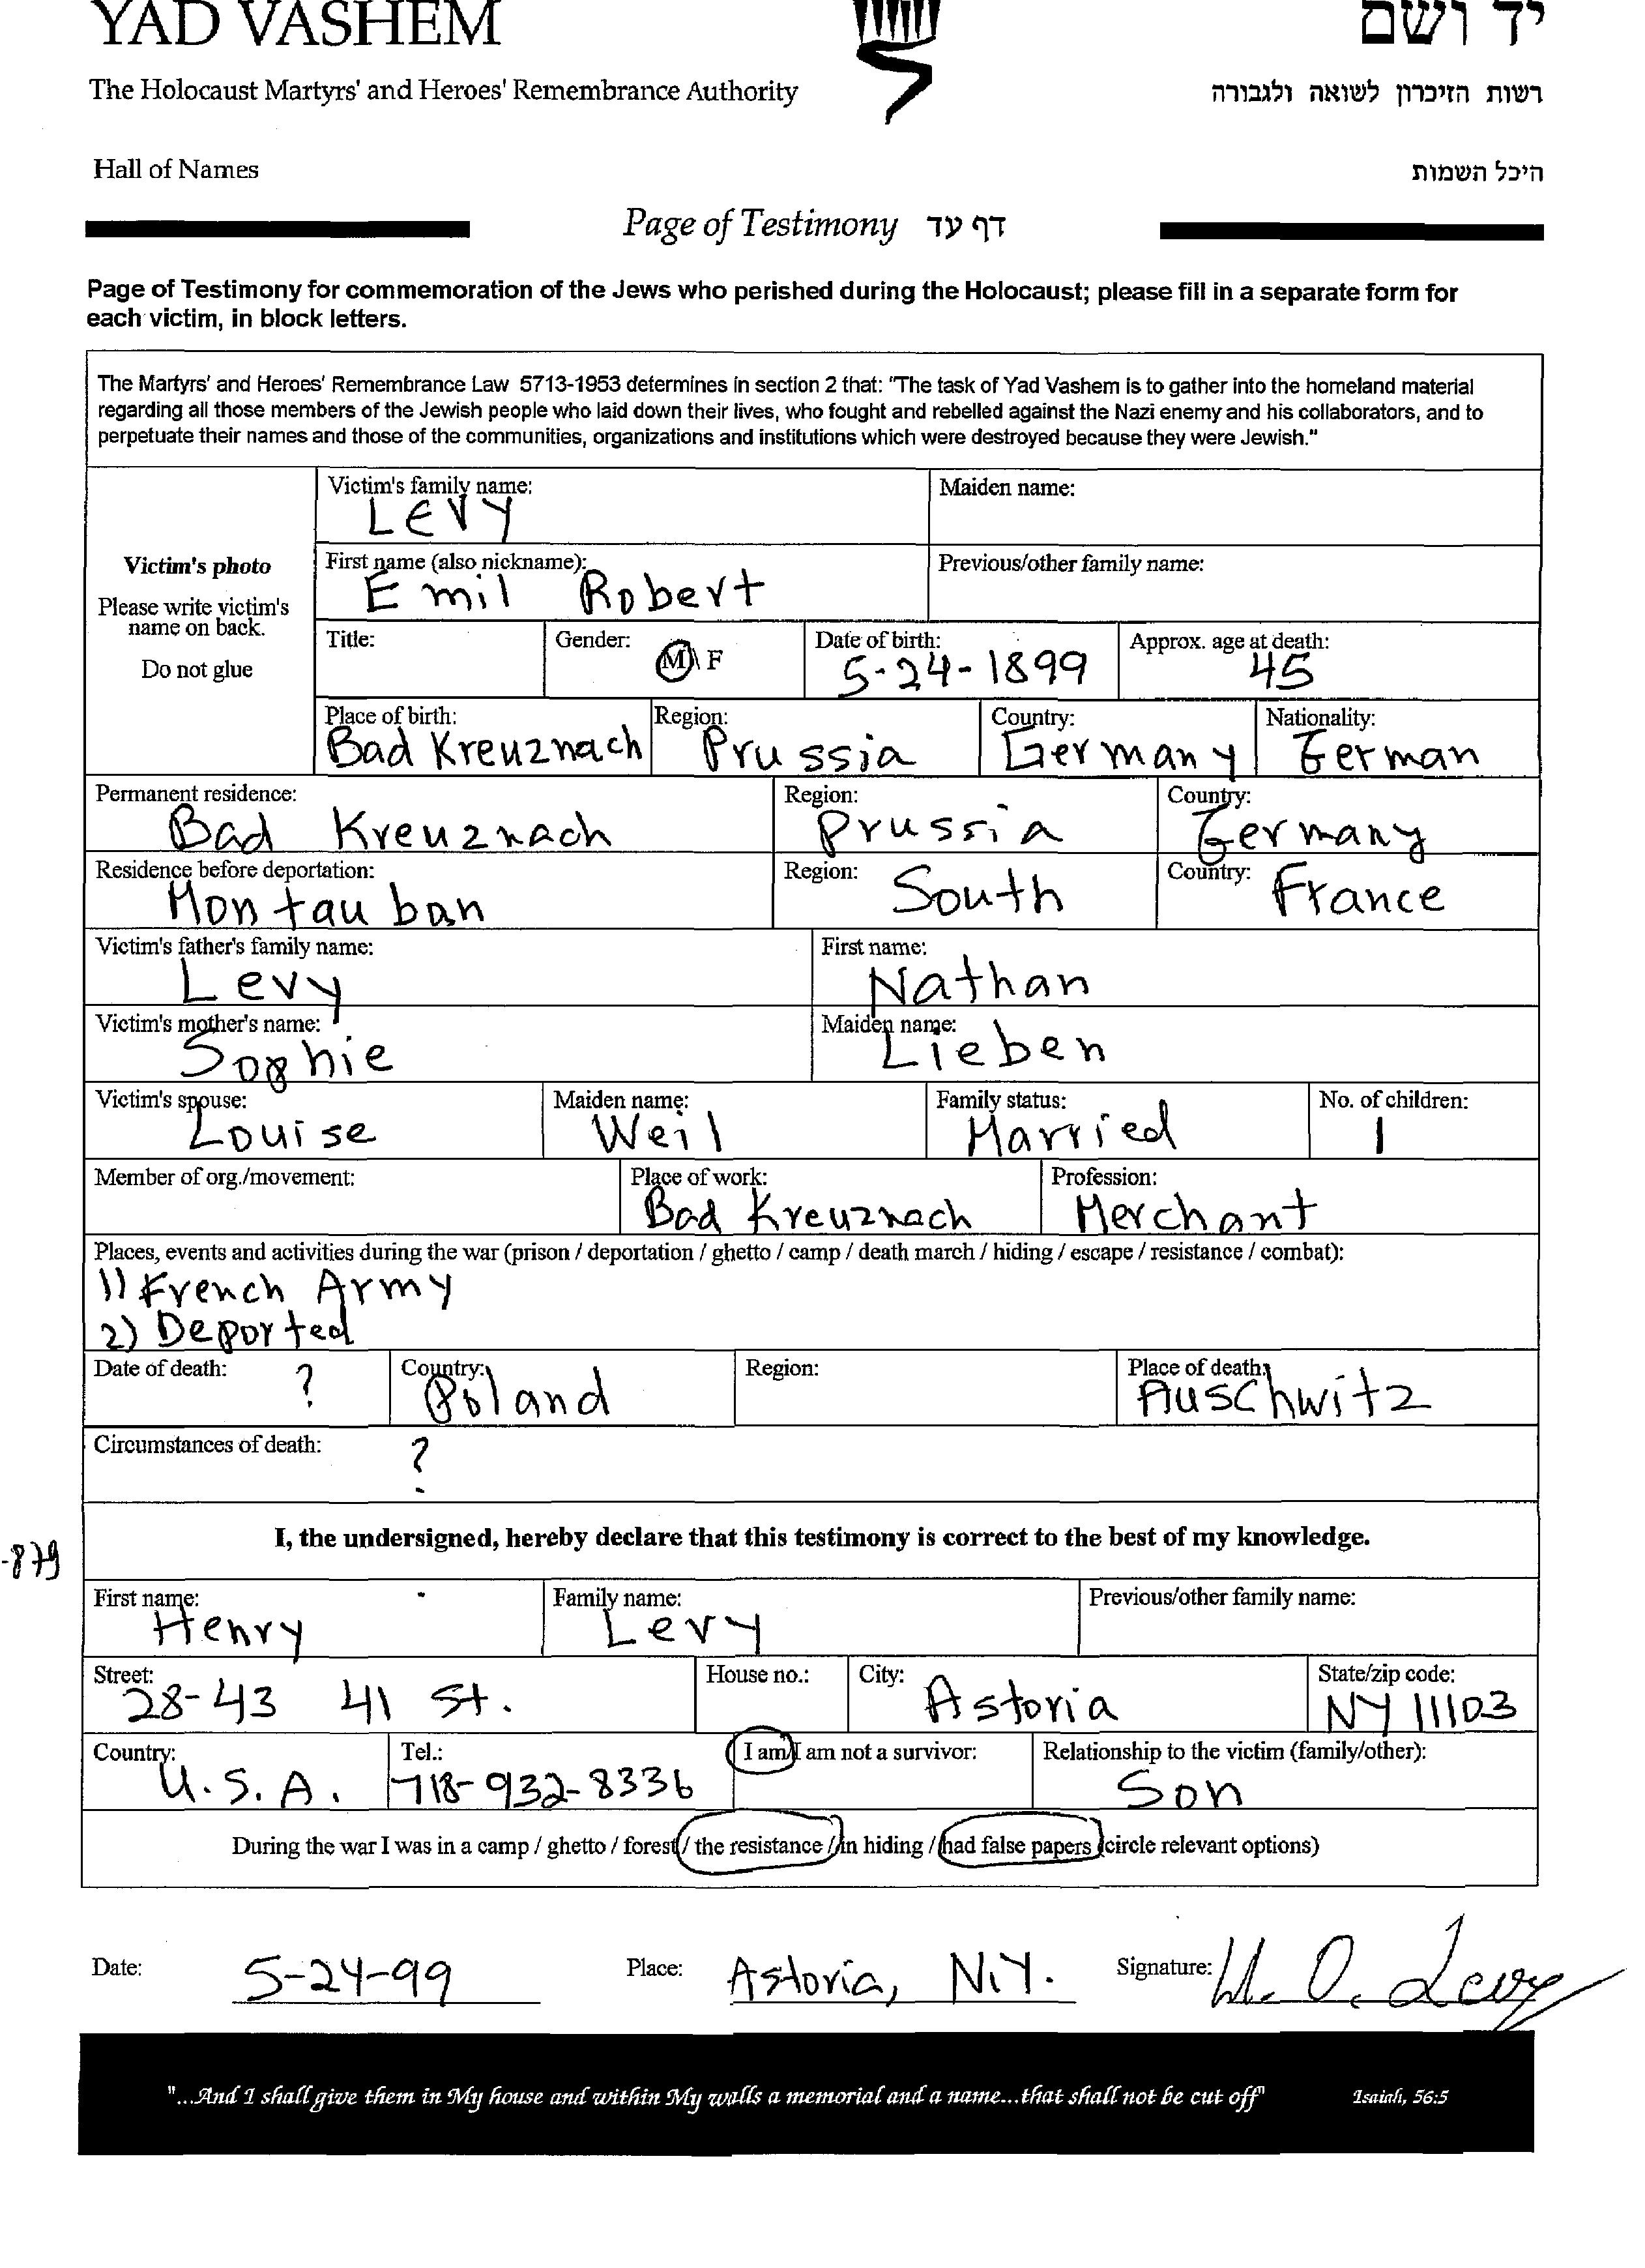 YAD VASHEM
יד ושם
The Holocaust Martyrs' and Heroes' Remembrance Authority
רשות הזיכרון לשואה ולגבורה
Hall of Names
היכל השמות
Page of Testimony דף עד
Page of Testimony for commemoration of the Jews who perished during the Holocaust; please fill in a separate form for
each victim, in block letters.
The Martyrs' and Heroes' Remembrance Law 5713-1953 determines in section 2 that: "The task of Yad Vashem is to gather into the homeland material
regarding all those members of the Jewish people who laid down their lives, who fought and rebelled against the Nazi enemy and his collaborators, and to
perpetuate their names and those of the communities, organizations and institutions which were destroyed because they were Jewish."
Victim's photo
Please write victim's
name on back.
Do not glue
Victim's family name: Maiden name:
LEVY
First name (also nickname): Previous/other family name:
Emil Robert
Title: Gender: M\F Date of birth: Approx. age at death:
5-24-1899 45
Place of birth: Region: Country: Nationality:
Bad Kreuznach Prussia Germany German
Permanent residence: Region: Country:
Bad Kreuznach Prussia Germany
Residence before deportation: Region: Country:
Montauban South France
Victim's father's family name: First name:
Levy Nathan
Victim's mother's name: Maiden name:
Sophie Lieben
Victim's spouse: Maiden name: Family status: No. of children:
Louise Weil Married 1
Member of org./movement: Place of work: Profession:
Bad Kreuznach Merchant
Places, events and activities during the war (prison / deportation / ghetto / camp / death march / hiding / escape / resistance / combat):
1) French Army
2) Deported
Date of death: Country: Region: Place of death:
? Poland Auschwitz
Circumstances of death: ?
I, the undersigned, hereby declare that this testimony is correct to the best of my knowledge.
-879
First name: Family name: Previous/other family name:
Henry Levy
Street: House no.: City: State/zip code:
28-43 41 St. Astoria NY 11103
Country: Tel.: I am/I am not a survivor: Relationship to the victim (family/other):
U.S.A. 718-932-8336 Son
During the war I was in a camp / ghetto / forest / the resistance / in hiding / had false papers (circle relevant options)
Date: 5-24-99 Place: Astoria, N.Y. Signature: H. O. Levy
"...And I shall give them in My house and within My walls a memorial and a name...that shall not be cut off" Isaiah, 56:5